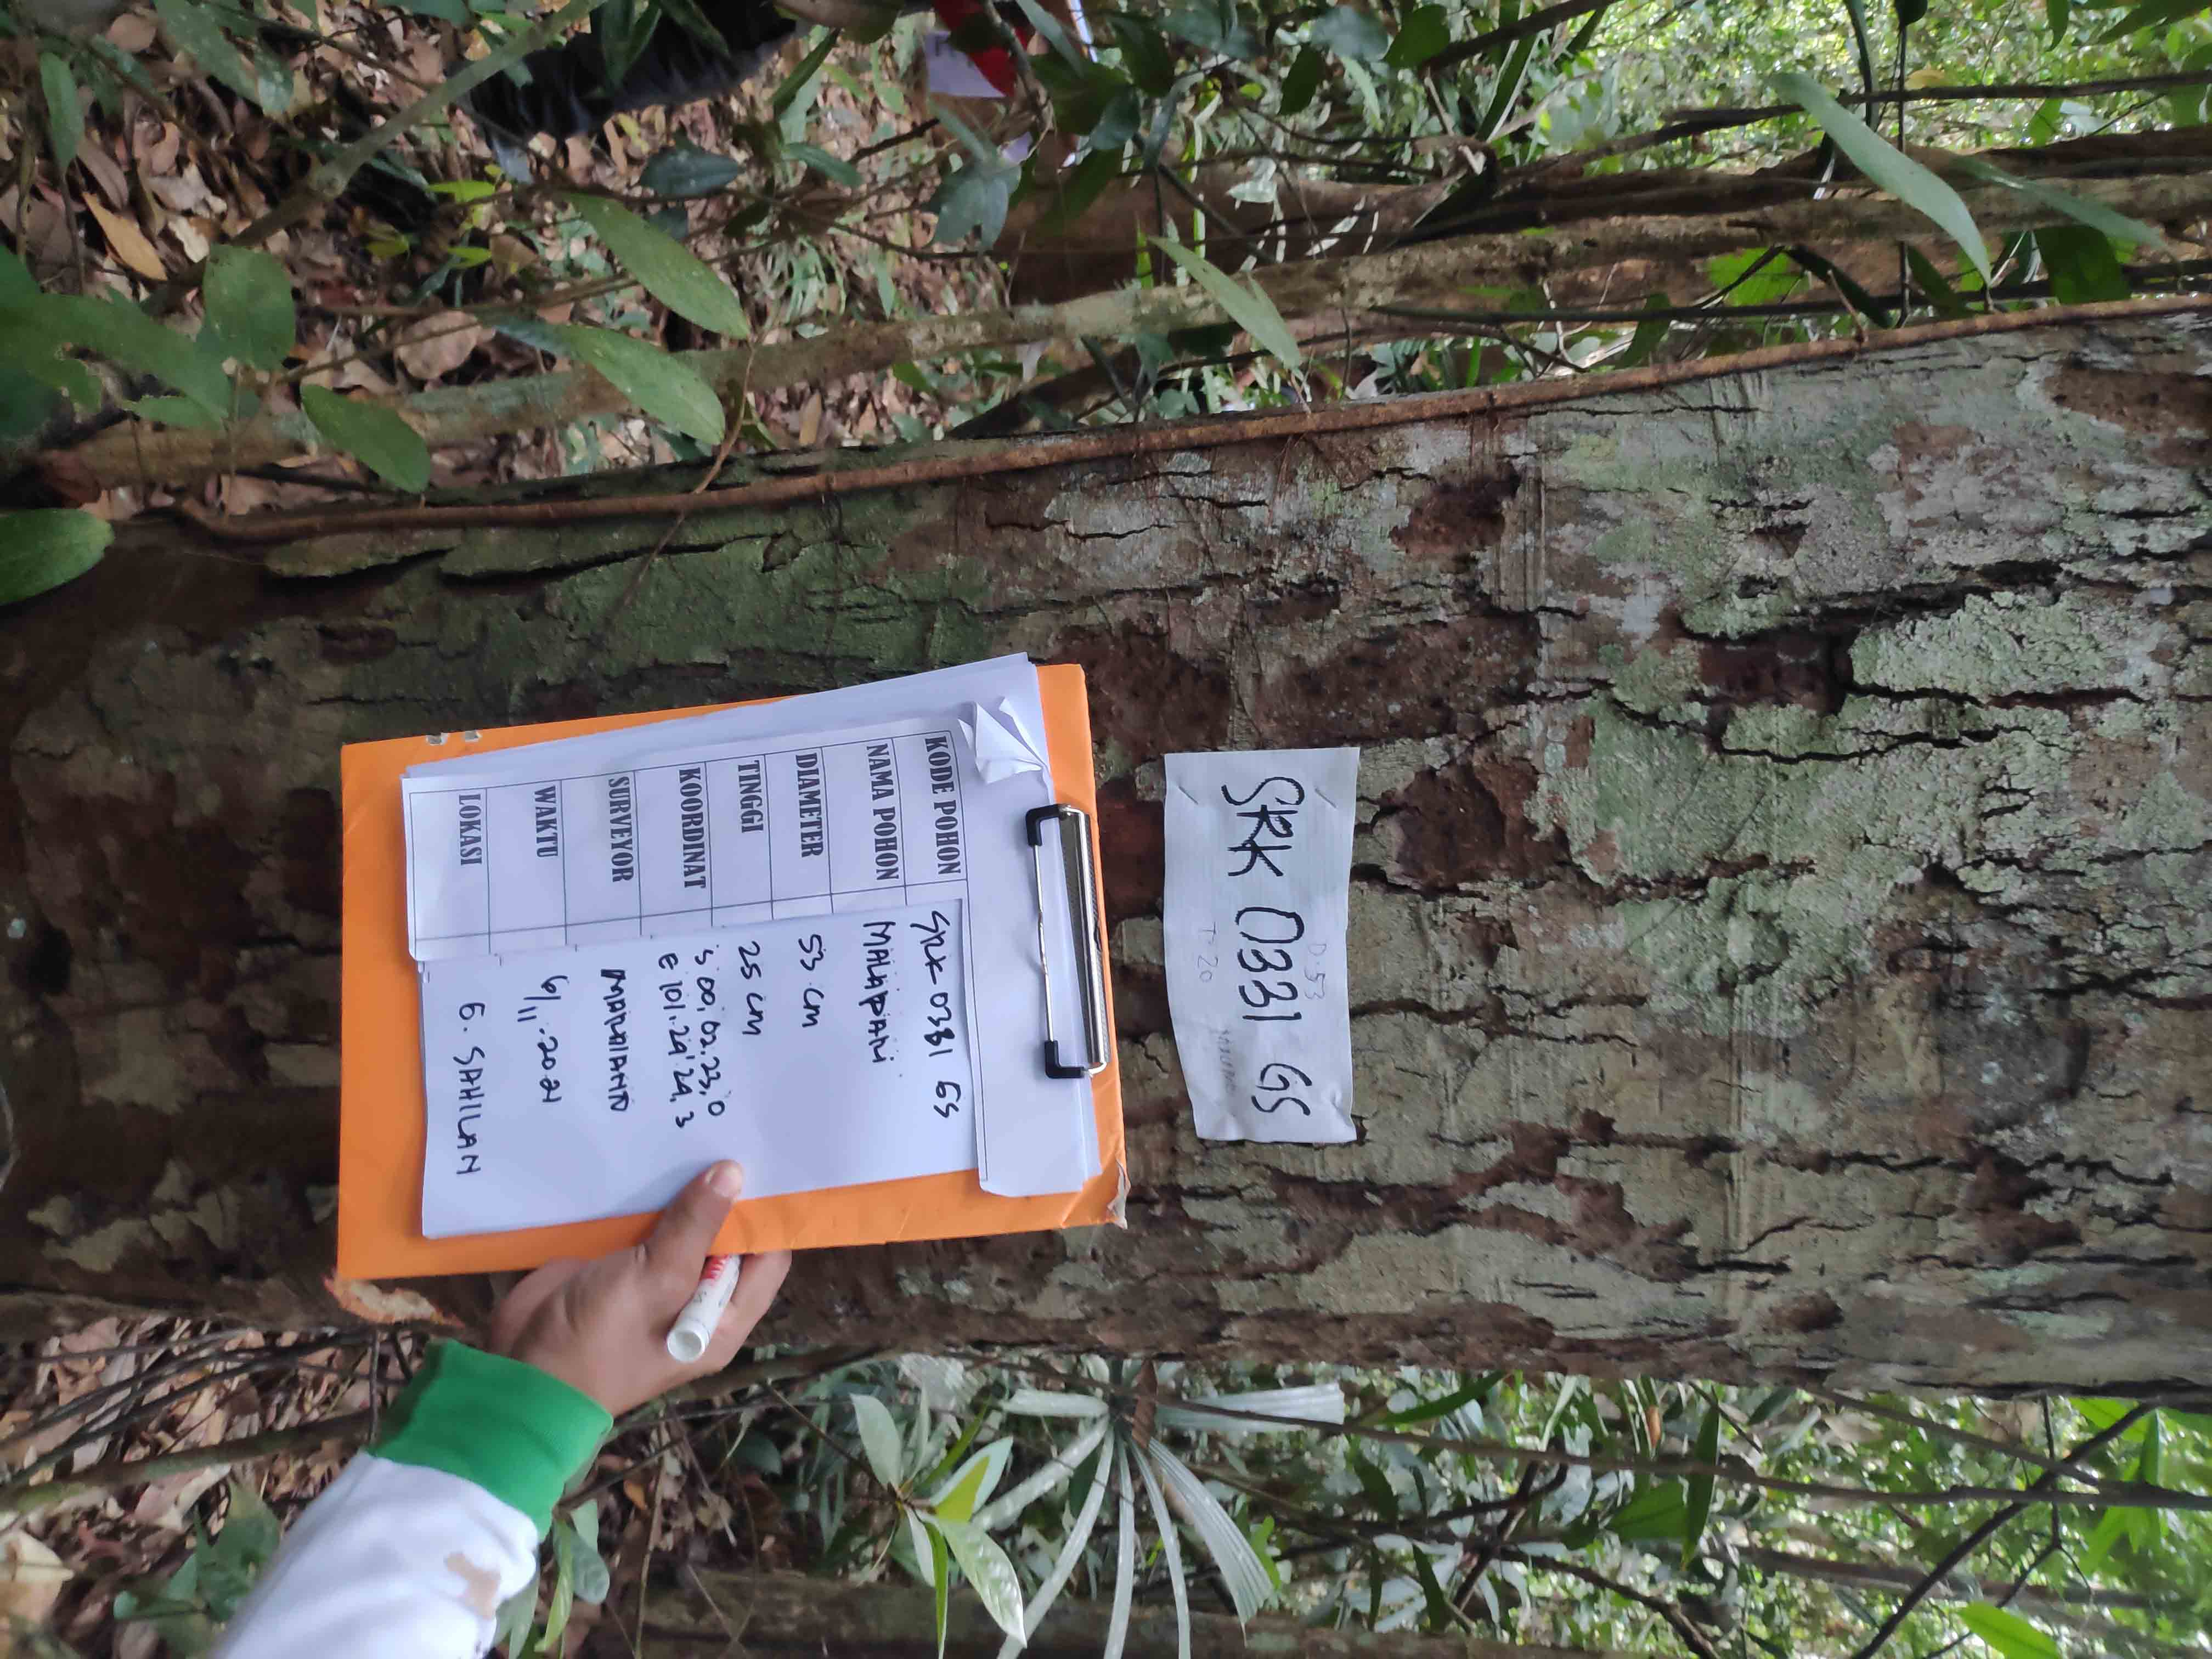 D. 53
SRK 0331 GS
T 20
KODE POHON SRK 0331 GS
NAMA POHON MALAPARI
DIAMETER 53 cm
TINGGI 25 cm
KOORDINAT S 00, 02. 23, 0
E 101. 29' 29, 3
SURVEYOR
WAKTU 6/11. 2021
LOKASI G. SAHILAN